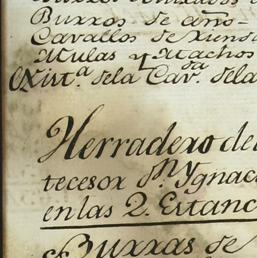 Burros de año
Cavallos de rienda
Mulas y Machos
Exist.ª dela Cav.da dela
Herradero del
tecesor dn Ygnac
en las 2. Estanc
Burras de